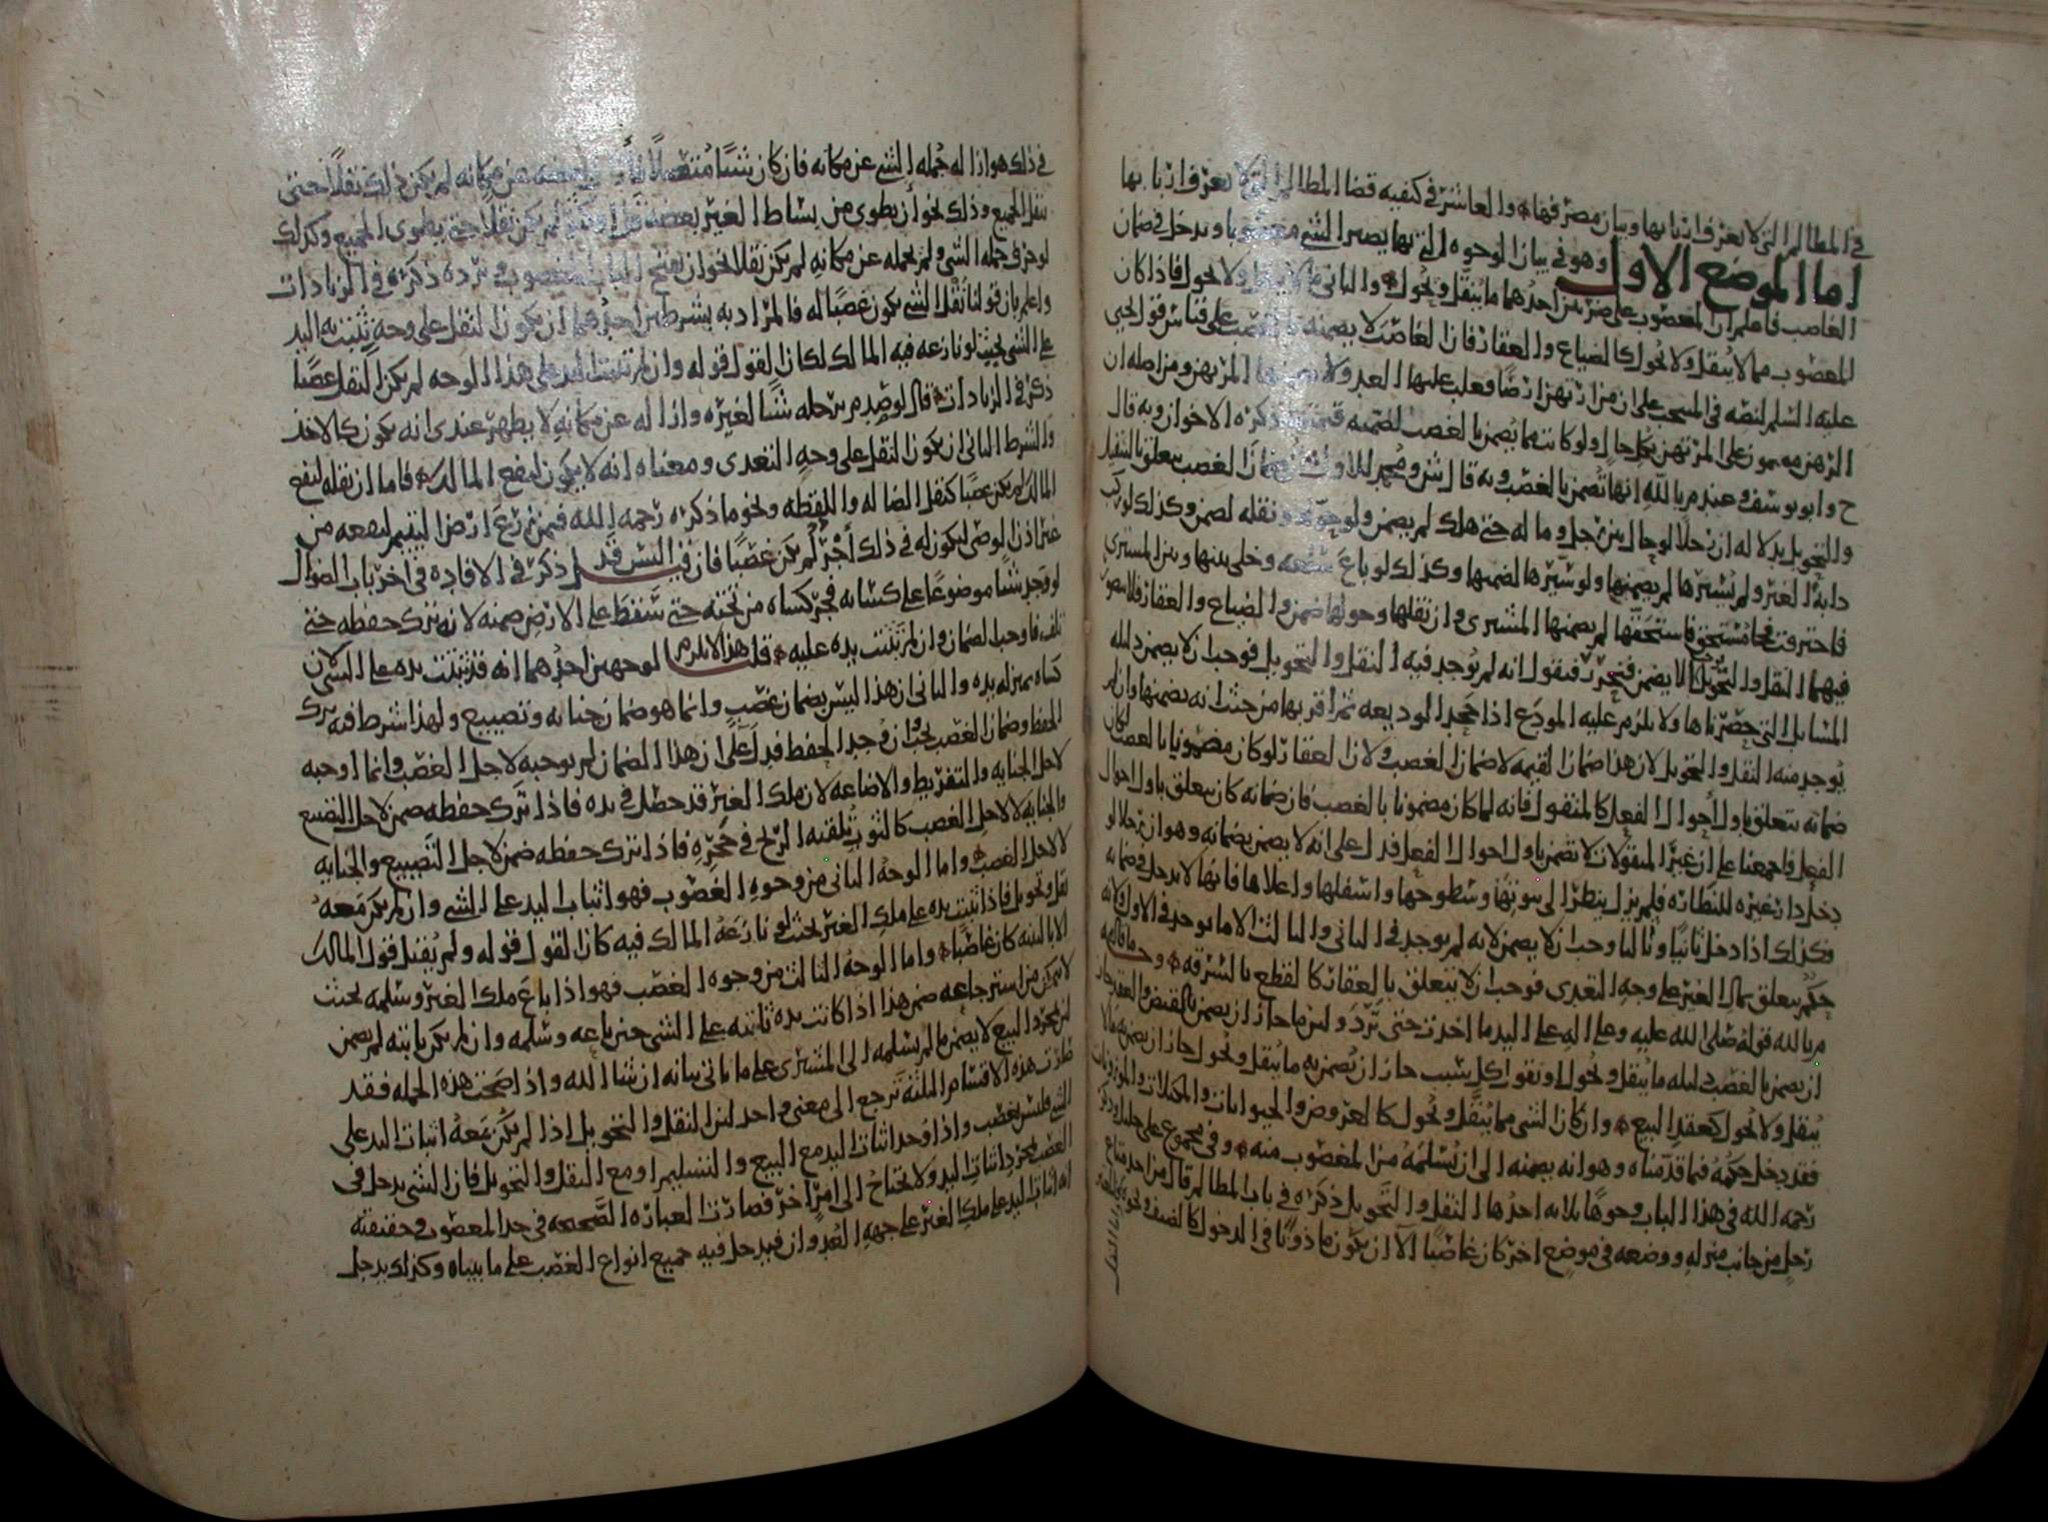 في المظالم التي لا يعرف اربابها وبيان مصرفها والعاشر في كيفيه قضا المظالم التي لا يعرف اربابها
اما الموضع الاول وهو في بيان الوجوه التي بها يصير الشي مغصوبا ويدخل في ضمان
الغاصب فاعلم ان المغصوب على ضربين احدهما ما ينقل ويحول والثاني ما لا ينقل ولا يحول فاذا كان
المغصوب مما لا ينقل ولا يحول كالضياع والعقار فان الغاصب لا يضمنه بالغصب على قياس قول يحيى
عليه السلم لنصه في المنتخب على ان من ارتهن ارضا فغلب عليها العدو لا يضمنها المرتهن ومن اصله ان
الرهن مضمون على المرتهن بكل حال ولو كانت مما يضمن بالغصب لضمنه قيمتها ذكره الاخوان وبه قال
ح وابو يوسف وعند م بالله انها تضمن بالغصب وبه قال ش ومحمد للاول ان ضمان الغصب يتعلق بالنقل
والتحويل بدلاله ان رجلا لو حال بين رجل وماله حتى هلك لم يضمن ولو حوله ونقله لضمن وكذلك لو ركب
دابة الغير ولم يسيرها لم يضمنها ولو سيرها لضمنها وكذلك لو باع سلعه وخلى بينها وبين المشتري
فاحترقت فجا مستحق فاستحقها لم يضمنها المشتري وان نقلها وحولها ضمن والضياع والعقار فلا يتصور
فيهما النقل والتحويل لا يضمن فنقول انه لم يوجد فيه النقل والتحويل فوجب ان لا يضمن دليله
المسايل التي حضرناها ولا يلزم عليه المودع اذا جحد الوديعه ثم اقر بها من حيث انه يضمنها وان لم
يوجد منه النقل والتحويل لان هذا ضمان القيمه لا ضمان الغصب ولان العقار لو كان مضمونا بالغصب لكان
ضمانه يتعلق باول احوال الفعل كالمنقول فانه لما كان مضمونا بالغصب فان ضمانه كان يتعلق باول احوال
الفعل فاجمعنا على ان غير المنقولات لا تضمن باول احوال الفعل فدل على انه لا يضمن بضمانه وهو ان رجلا لو
دخل دار غيره للنظاره فلم يزل ينظر الى بيوتها وسطوحها واسفلها واعلاها فانها لا تدخل في ضمانه
فكذلك اذا دخل ثانيا وثالثا وجب ان لا يضمن لانه لم يوجد في الثاني والثالث الا ما يوجد في الاول ولانه
حكم يتعلق بمال الغير على وجه التعدي فوجب ان لا يتعلق بالعقار كالقطع بالسرقه وحجه ما قاله
م بالله قوله صلى الله عليه وعلى اله على اليد ما اخذت حتى ترد ولان ما جاز ان يضمن بالقبض والعقد جاز
ان يضمن بالغصب دليله ما ينقل ويحول او نقول كل سبب جاز ان يضمن به ما ينقل ويحول جاز ان يضمن به ما لا
ينقل ولا يحول كعقد البيع وان كان الشي مما ينقل ويحول كالعروض والحيوانات والمكيلات والموزونات
فقد دخل حكمه فيما قدمناه وهو انه يضمنه الى ان يسلمه من المغصوب منه وفي مجموع علي خليل وذكر
رحمه الله في هذا الباب وجوها ثلاثه احدها النقل والتحويل ذكره في باب المظالم قال من اخذ متاع
رجل من جانب منزله ووضعه في موضع اخر كان غاصبا الا ان يكون ماذونا في الدخول كالضيف ونحوه
في ذلك هو ازاله جمله الشي عن مكانه فان كان شيئا متصلا فازال بعضه عن مكانه لم يكن ذلك نقلا حتى
ينقل الجميع وذلك نحو ان يطوي من بساط الغير بعضه لم يكن نقلا حتى يطوي الجميع وكذلك
لو حرك جمله الشي ولم يحمله عن مكانه لم يكن نقلا نحو ان يفتح الباب المغصوب ويرده ذكره في الزيادات
واعلم بان قولنا نقل الشي يكون غصبا له فالمراد به بشرطين احدهما ان يكون النقل على وجه تثبت به اليد
على الشي بحيث لو نازعه فيه المالك لكان القول قوله وان لم تثبت اليد على هذا الوجه لم يكن النقل غصبا
ذكر في الزيادات قال لو صدم برجله شيئا لغيره وازاله عن مكانه لا يظهر عندي انه يكون كالاخذ
والشرط الثاني ان يكون النقل على وجه التعدي ومعناه انه لا يكون لنفع المالك فاما ان نقله لنفع
المالك لم يكن غصبا كنقل الضاله واللقطه ونحو ما ذكره رحمه الله فيمن زرع ارضا ليتيم لينفعه من
غير اذن الوصي ليكون له في ذلك اجر لم يكن غصبا فان قيل اليس قد ذكر في الافاده في اخر باب الضوال
لو وجد شيئا موضوعا على كسائه فجر كساه من تحته حتى سقط على الارض ضمنه لانه ترك حفظه حتى
تلف فاوجب الضمان وان لم تثبت يده عليه قلت هذا لا يلزم لوجهين احدهما انه قد ثبتت يده على الشي لان
كساه بمنزله يده والثاني ان هذا ليس بضمان غصب وانما هو ضمان جنايه وتضييع ولهذا شرط فيه ترك
الحفظ وضمان الغصب يجب ان وجد الحفظ فدل على ان هذا الضمان لم يوجبه لاجل الغصب وانما اوجبه
لاجل الجنايه والتفريط والاضاعه لان ملك الغير قد حصل في يده فاذا ترك حفظه ضمن لاجل التضييع
والجنايه لا لاجل الغصب كالثوب تلقيه الريح في حجره فاذا ترك حفظه ضمن لاجل التضييع والجنايه
لا لاجل الغصب واما الوجه الثاني من وجوه الغصوب فهو اثبات اليد على الشي وان لم يكن معه
نقل وتحويل فاذا ثبتت يده على ملك الغير بحيث لو نازعه المالك فيه كان القول قوله ولم يقبل قول المالك
الا بالبينه كان غاصبا واما الوجه الثالث من وجوه الغصب فهو اذا باع ملك الغير وسلمه بحيث
لا يتمكن من استرجاعه ضمن هذا اذا كانت يده ثابته على الشي حين باعه وسلمه وان لم يكن ثابته لم يضمن
لان مجرد البيع لا يضمن ما لم يسلمه الى المشتري على ما ياتي بيانه ان شا الله واذا صحت هذه الجمله فقد
صارت هذه الاقسام الثلثة ترجع الى معنى واحد لان النقل والتحويل اذا لم يكن معه اثبات اليد على
الشي فليس بغصب واذا وجد اثبات اليد مع البيع والتسليم او مع النقل والتحويل فان الشي يدخل في
الغصب بمجرد اثبات اليد ولا يحتاج الى امر اخر فصارت العباره الصحيحه في حد المغصوب وحقيقته
انه اثبات اليد على ملك الغير على جهه العدوان فيدخل فيه جميع انواع الغصب على ما بيناه وكذلك يدخل